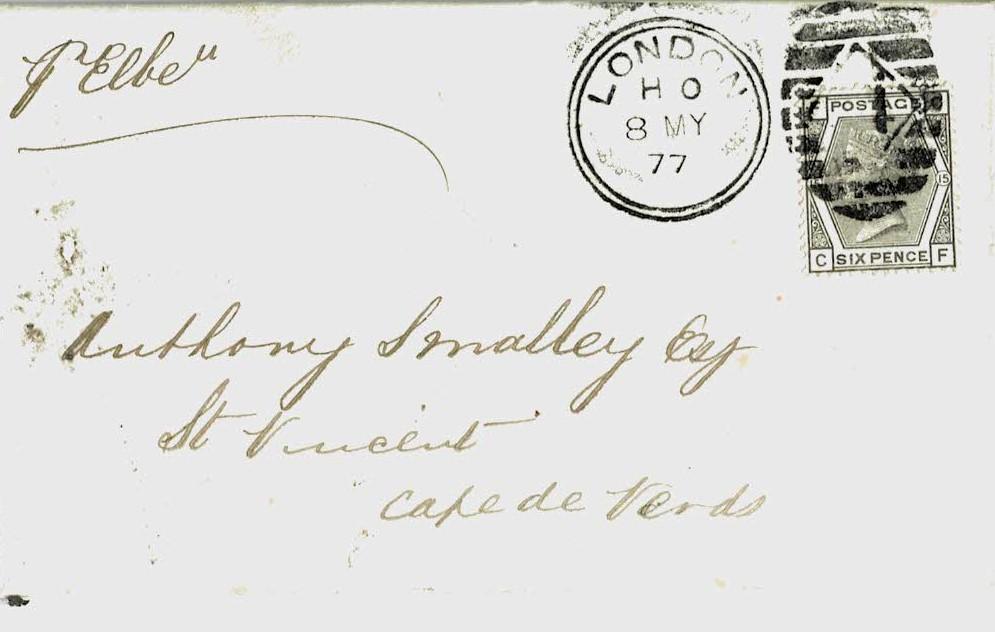 pr "Elbe"
LONDON
H O
8 MY
77
POSTAGE
15
C SIX PENCE F
Anthony Smalley Esq
St Vincent
Cape de Verds